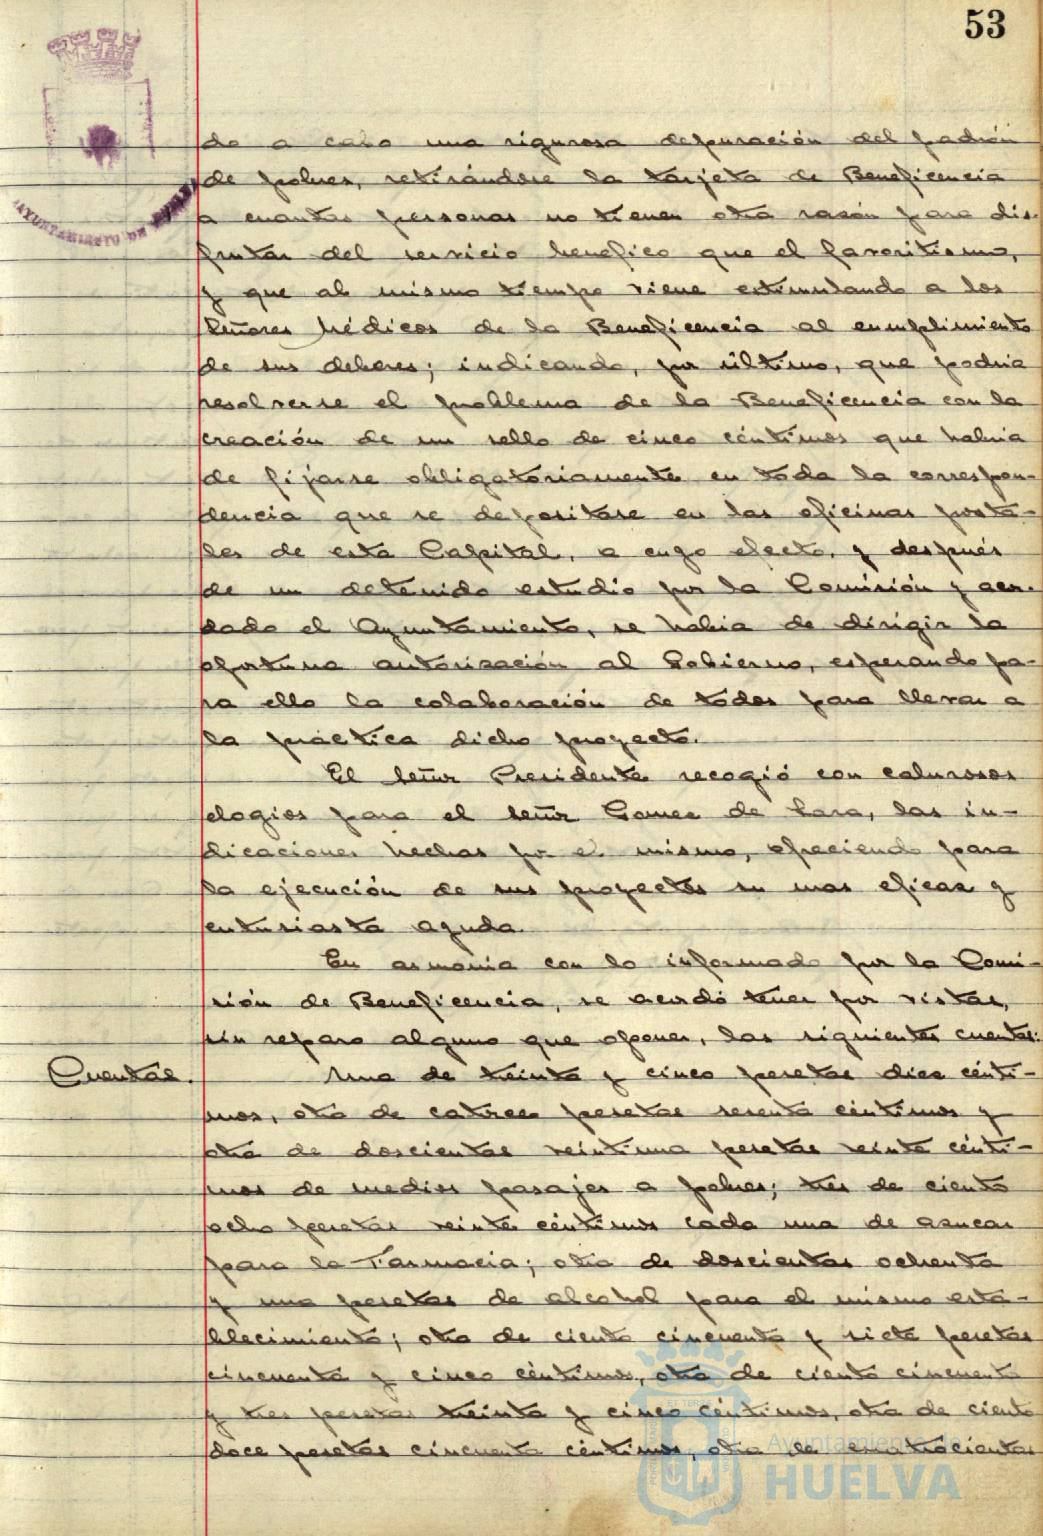 53
AYUNTAMIENTO DE HUELVA
do a cabo una rigurosa depuración del padrón
de pobres, retirándose la tarjeta de Beneficencia
a cuantas personas no tienen otra razón para dis-
frutar del servicio benefico que el favoritismo,
y que al mismo tiempo viene estimulando a los
señores Médicos de la Beneficencia al cumplimiento
de sus deberes; indicando, por último, que podria
resolverse el problema de la Beneficencia con la
creación de un sello de cinco céntimos que habria
de fijarse obligatoriamente en toda la correspon-
dencia que se depositase en las oficinas posta-
les de esta Capital, a cuyo efecto, y después
de un detenido estudio por la Comisión y acor-
dado el Ayuntamiento, se habia de dirigir la
oportuna autorización al Gobierno, esperando pa-
ra ello la colaboración de todos para llevar a
la práctica dicho proyecto.
El señor Presidente recogió con calurosos
elogios para el señor Gomez de Lara, las in-
dicaciones hechas por el mismo, ofreciendo para
la ejecución de sus proyectos su mas eficaz y
entusiasta ayuda.
En armonia con lo informado por la Comi-
sión de Beneficencia, se acordó tener por vistas,
sin reparo alguno que oponer, las siguientes cuentas:
Cuentas.
Una de treinta y cinco pesetas diez cénti-
mos, otra de catorce pesetas sesenta céntimos y
otra de doscientas veintiuna pesetas veinte cénti-
mos de medios pasajes a pobres; tres de ciento
ocho pesetas veinte céntimos cada una de azucar
para la Farmacia; otra de doscientas ochenta
y una pesetas de alcohol para el mismo esta-
blecimiento; otra de ciento cincuenta y siete pesetas
cincuenta y cinco céntimos, otra de ciento cincuenta
y tres pesetas treinta y cinco céntimos, otra de ciento
doce pesetas cincuenta céntimos, otra de cuatrocientas
Ayuntamiento de
HUELVA